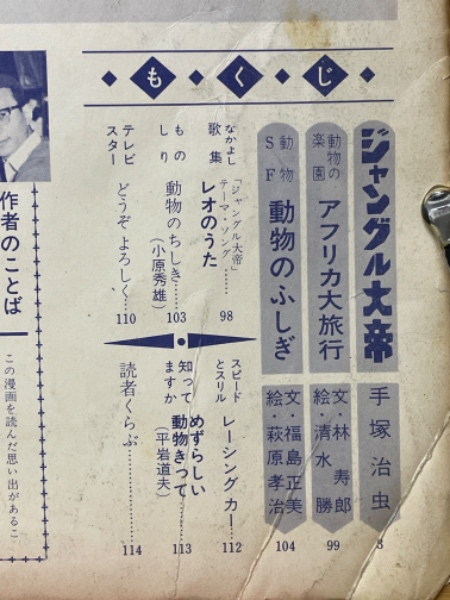 もくじ
ジャングル大帝
手塚治虫
3
動物の楽園
アフリカ大旅行
文・林 寿郎
絵・清水 勝
99
動物SF
動物のふしぎ
文・福島正美
絵・萩原孝治
104
なかよし歌集
「ジャングル大帝」テーマ・ソング
レオのうた……
98
ものしり
動物のちしき……
(小原秀雄)
103
テレビスター
どうぞよろしく……
110
スピードとスリル
レーシングカー……
112
知ってますか
めずらしい動物きって……
(平岩道夫)
113
読者くらぶ……
114
作者のことば
この漫画を読んだ思い出があるこ